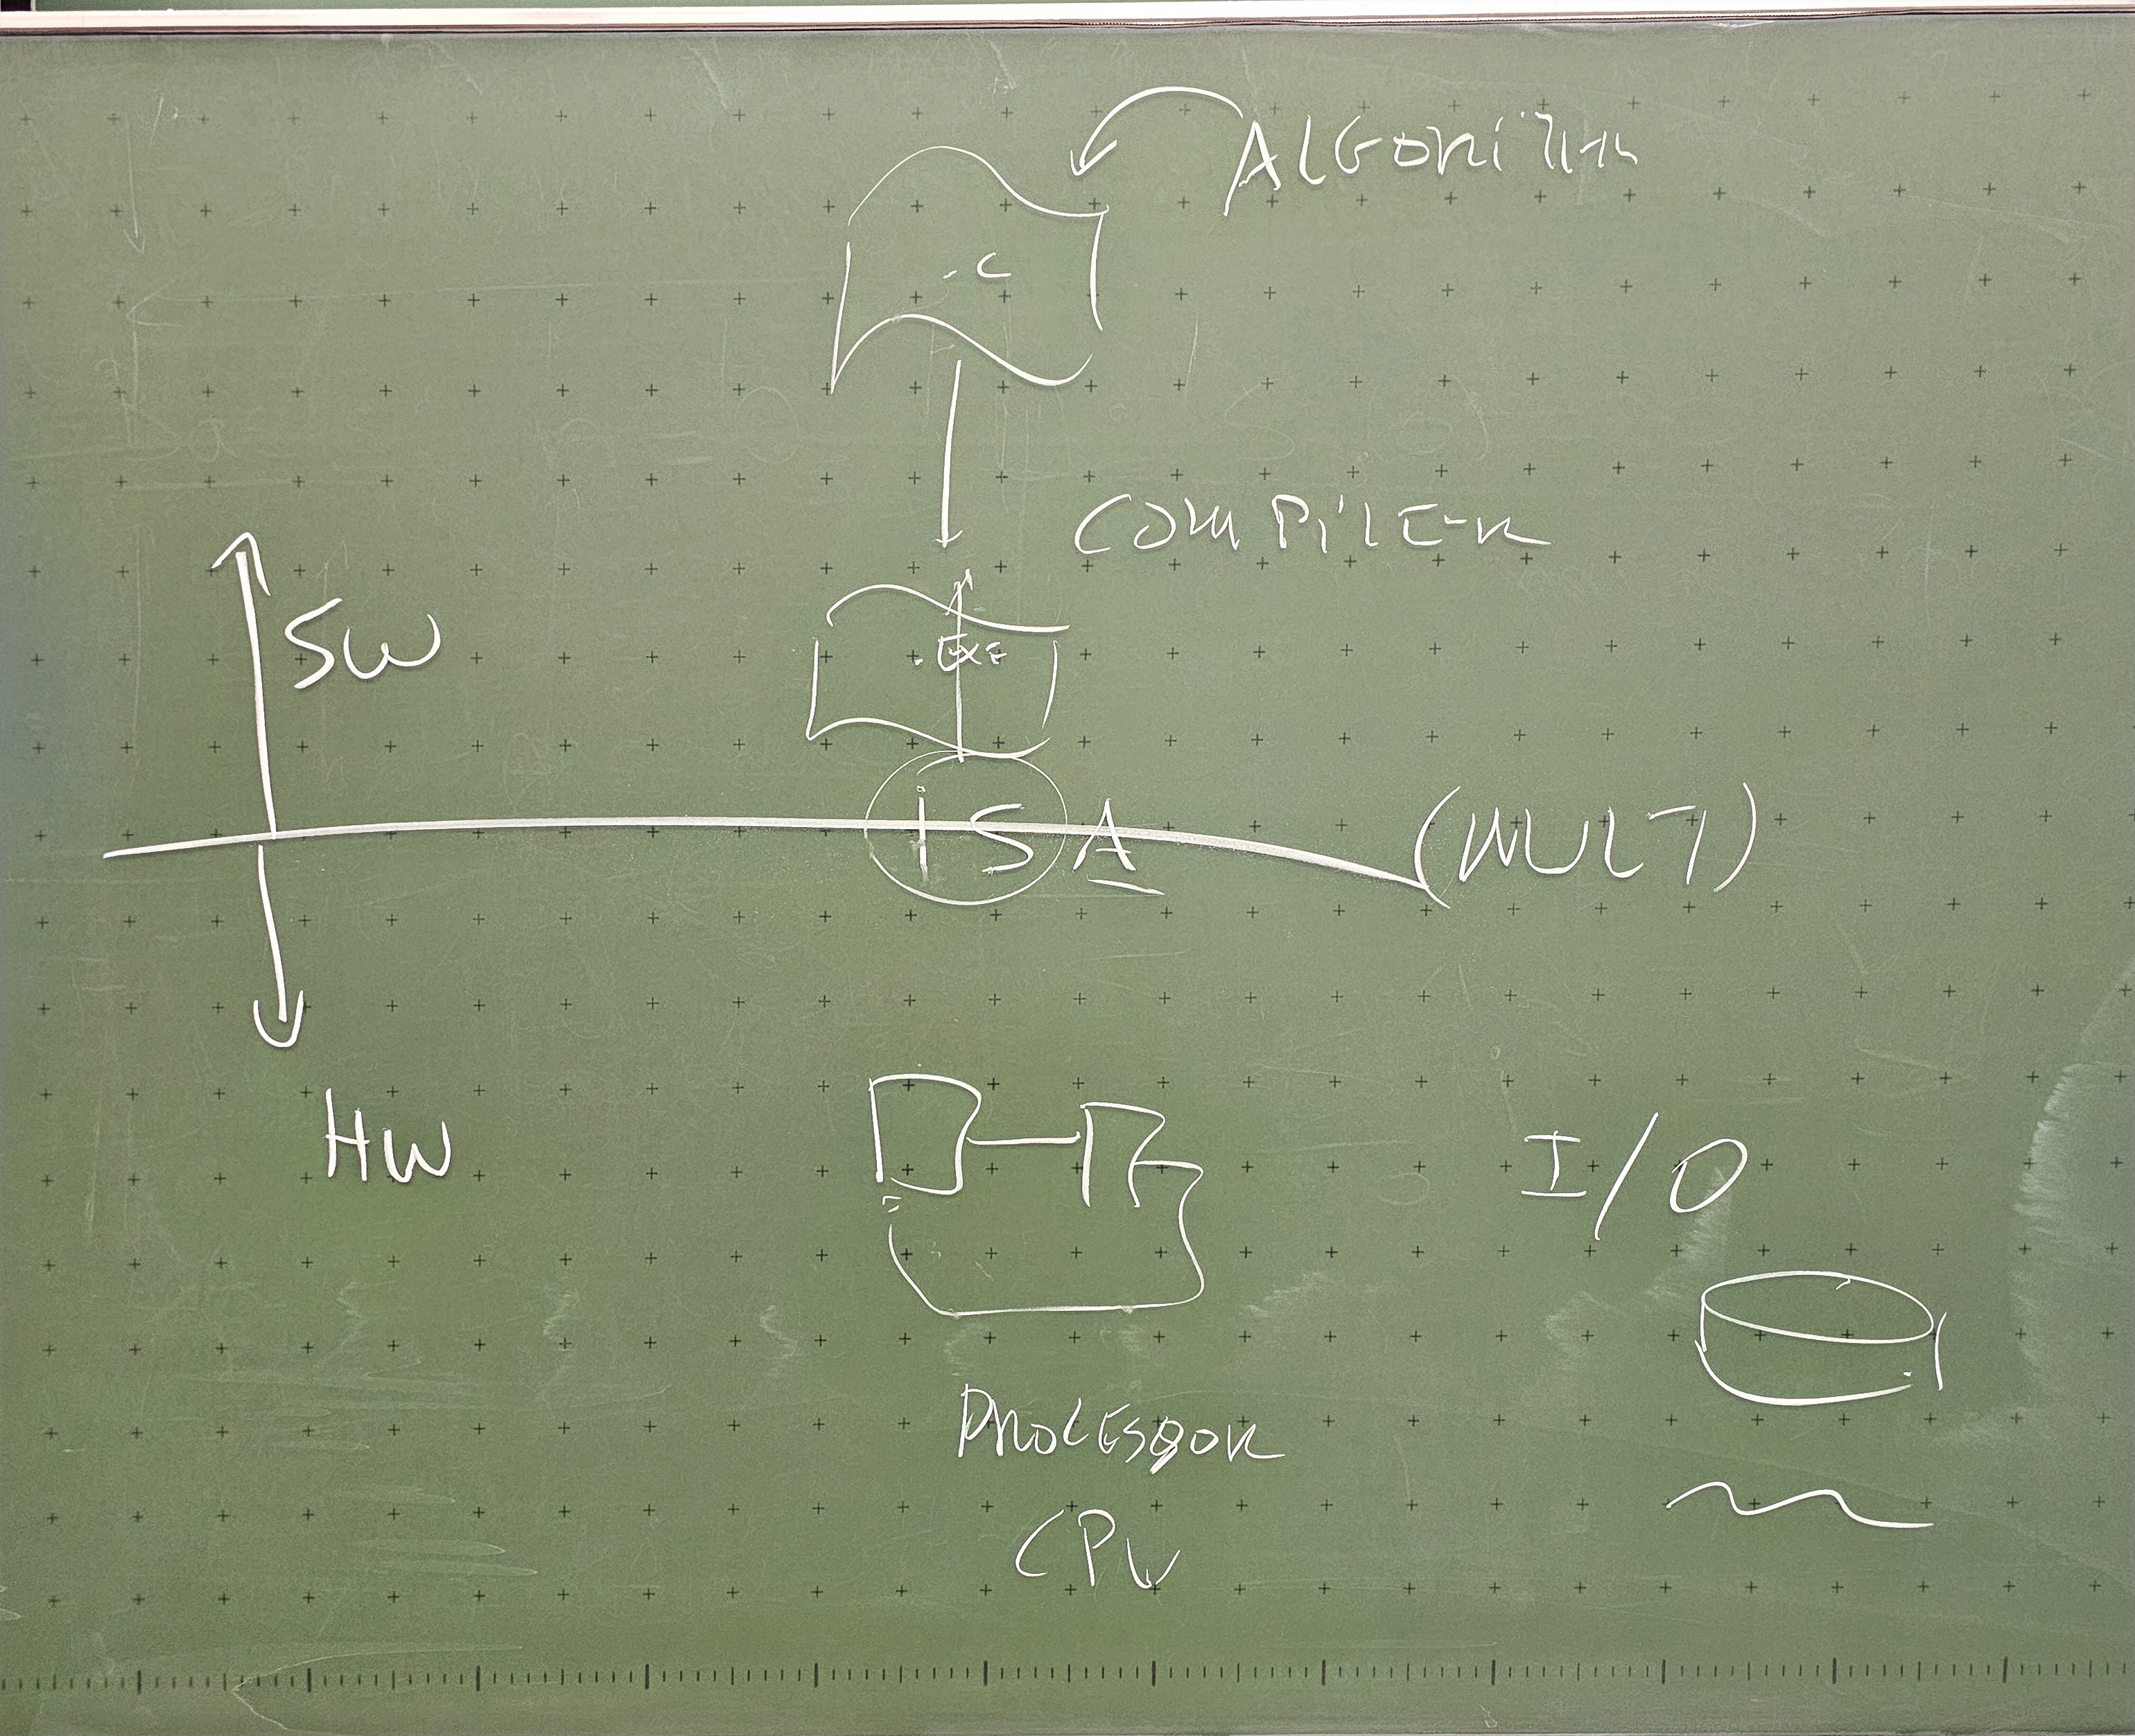 ALGORITHM
.C
COMPILER
SW
.EXE
ISA
(MULT)
HW
I/O
PROCESSOR
CPU